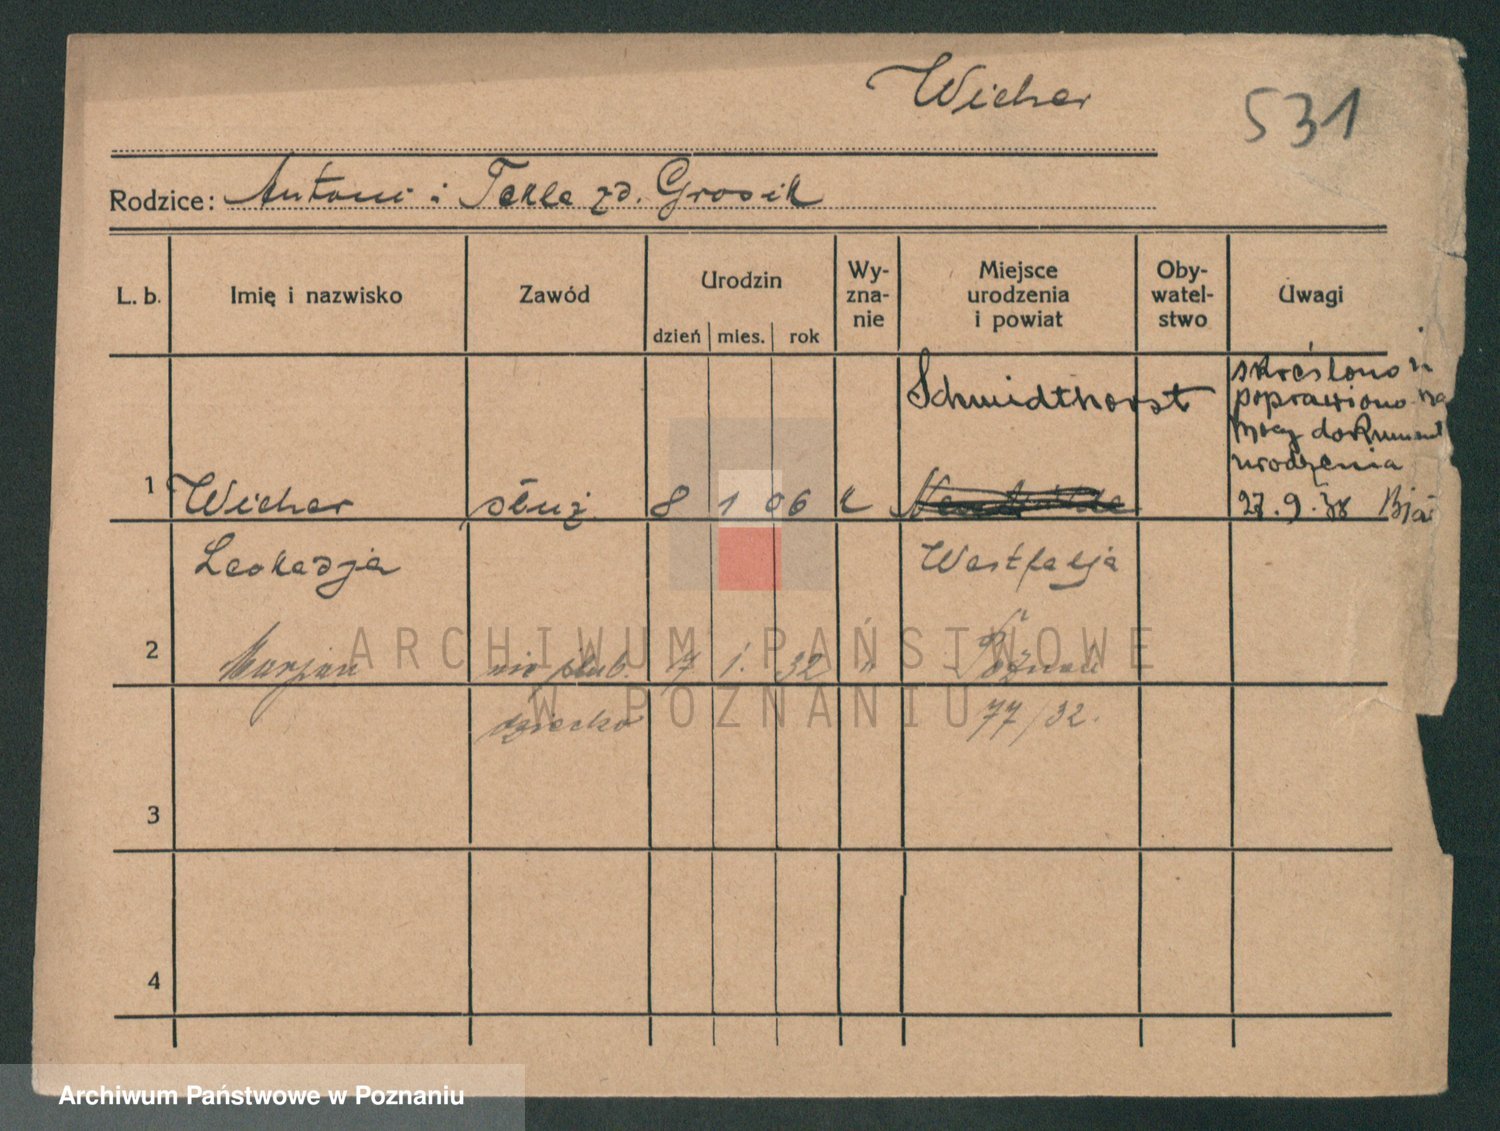 Wicher
531
Rodzice: Antoni i Tekle zd. Grosik
L. b.
Imię i nazwisko
Zawód
Urodzin
dzień mies. rok
Wy-
zna-
nie
Miejsce
urodzenia
i powiat
Oby-
watel-
stwo
Uwagi
1 Wicher służ. 8 1 06 k
Schmidthorst
skreślono i
poprawiono na
mocy dokument
urodzenia
27.9.38
Leokadja
Westfalja
2 Marjan nieślub. 7 1. 32 " Poznań
dziecko
77/32.
3
4
ARCHIWUM PAŃSTWOWE
W POZNANIU
Archiwum Państwowe w Poznaniu